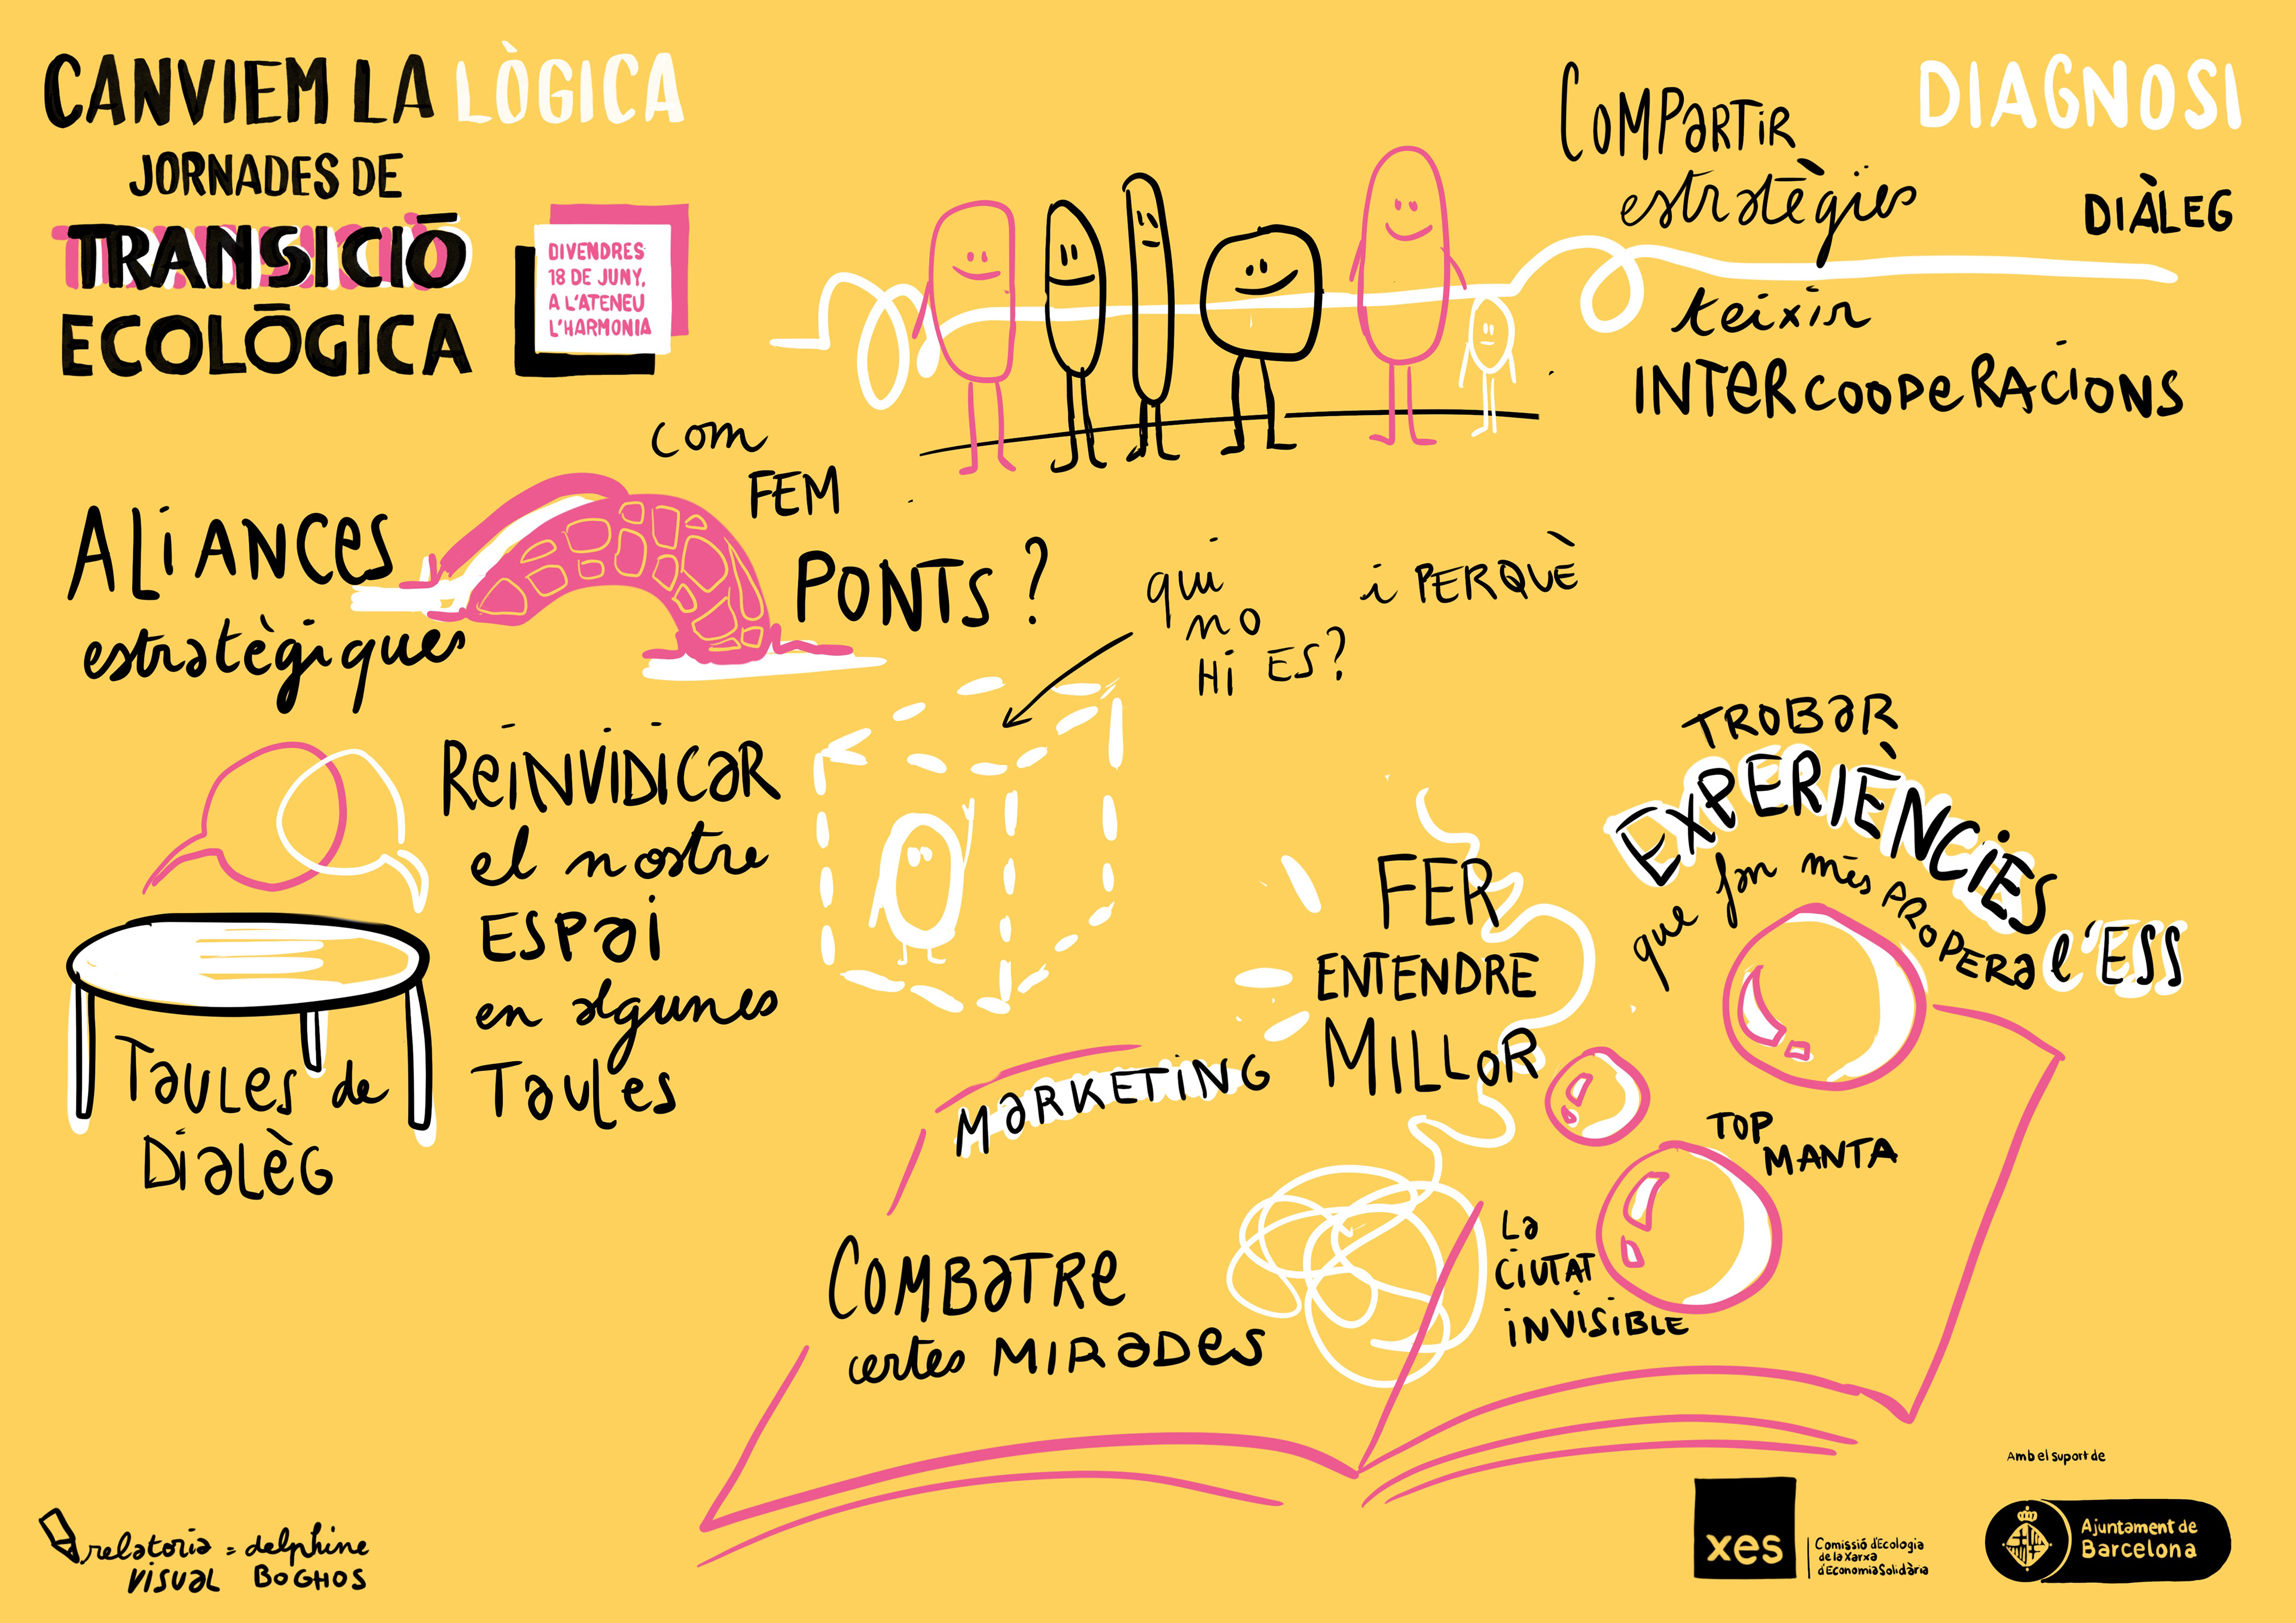 CANVIEM LA LÒGICA
JORNADES DE
TRANSICIÓ
ECOLÒGICA
DIVENDRES
18 DE JUNY,
A L'ATENEU
L'HARMONIA
DIAGNOSI
DIÀLEG
COMPARTIR
estratègies
teixir
INTERCOOPERACIONS
ALIANCES
estratègiques
com
FEM
PONTS?
qui
no
HI ES?
i PERQUÈ
REINVIDICAR
el nostre
ESPAI
en algunes
TAULES
TAULES de
DIALÈG
MARKETING
FER
ENTENDRE
MILLOR
COMBATRE
certes MIRADES
TROBAR
EXPERIÈNCIES
que fan més PROPERA l'ESS
TOP
MANTA
La
CIUTAT
INVISIBLE
relatoria = delphine
VISUAL BOGHOS
xes
Comissió d'Ecologia
de la Xarxa
d'Economia Solidària
Amb el suport de
Ajuntament de
Barcelona